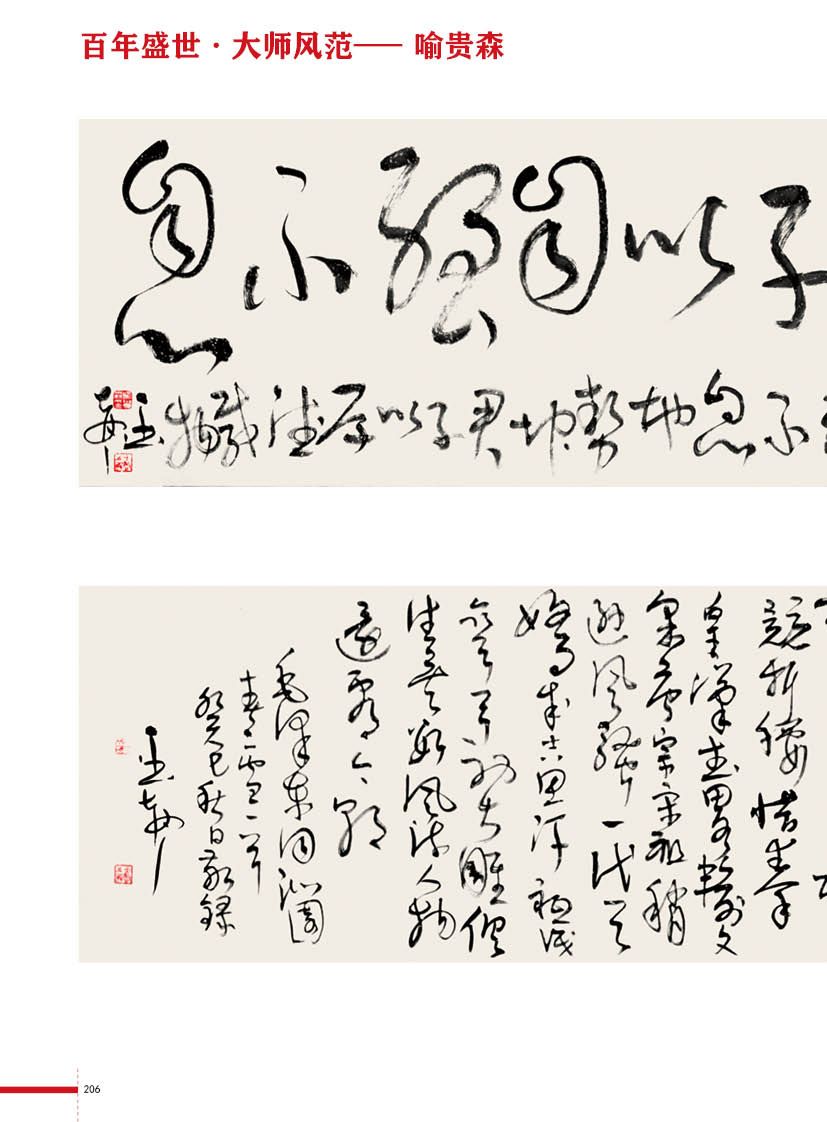 百年盛世·大师风范—— 喻贵森
子以自强不息
不息地势坤君子以厚德载物
競折腰惜秦
皇漢武略输文
采唐宗宋祖稍
逊风骚一代天
骄成吉思汗祗识
弯弓射大雕俱
往矣数风流人物
還看今朝
毛泽东词沁园
春雪一首
癸巳秋日敬録
206